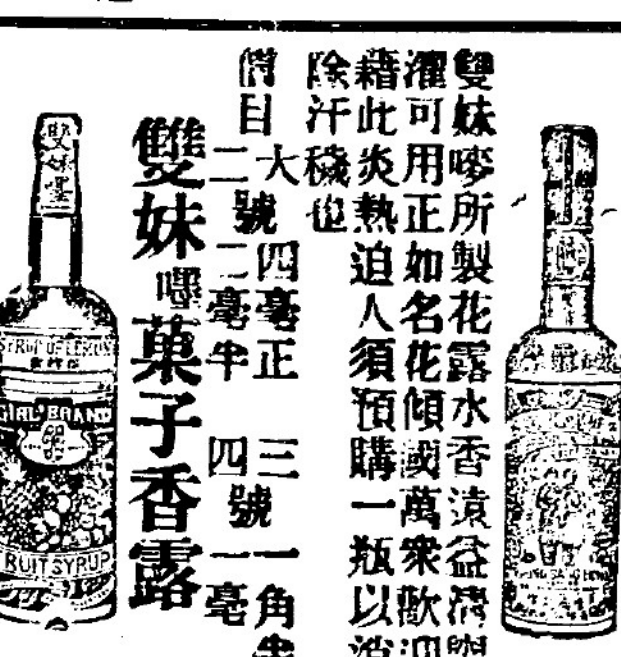 雙妹嘜所製花露水香遠益清
灌可用正如名花傾國萬衆歡迎
藉此炎熱迫人須預購一瓶以
除汗穢也
價目
大號四毫正 三號一角
二號二毫半 四號一毫
雙妹嚜菓子香露
雙妹嚜
SYRUP OF LEMON
GIRL BRAND
RUIT SYRUP